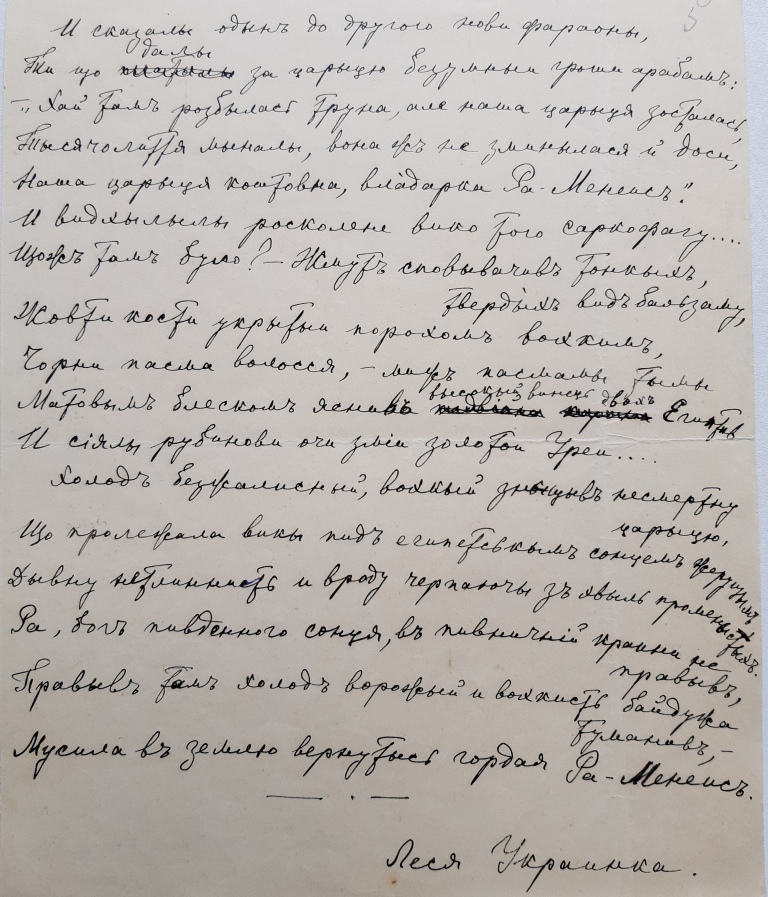 И сказалы одынъ до другого нови фараоны,
дали
Ти що за царыцю безумныи гроши арабамъ:
– „Хай тамъ розбылась труна, але наша царыця зосталась,
Тысячолиття мыналы, вона жъ не зминылася й доси,
Наша царыця коштовна, владарка Ра-Менеисъ".
И видхылылы росколене вико того саркофагу....
Щожъ тамъ було? – Жмутъ сповывачивъ тонкыхъ,
твердыхъ видъ бальзаму,
Жовти кости укрытыи порохомъ вохкимъ,
Чорни пасма волосся, – мижъ пасмамы тымы
высокый винець двохъ
Матовымъ блескомъ яснивъ Египтив
И сіялы рубинови очи зміи золотои Уреи....
Холодъ безжалисный, вохкый знищывъ несмертну
царыцю,
Що пролежала викы пидъ египетськымъ сонцемъ жерущымъ
Дывну нетлинность и вроду черпаючы зъ хвыль променыстыхъ.
Ра, богъ пивденного сонця, въ пивничній краини не
правывъ,
Правывъ тамъ холодъ ворожый и вохкисть байдужа
туманивъ, –
Мусила въ землю вернутысь гордая Ра-Менеисъ.
Леся Украинка.